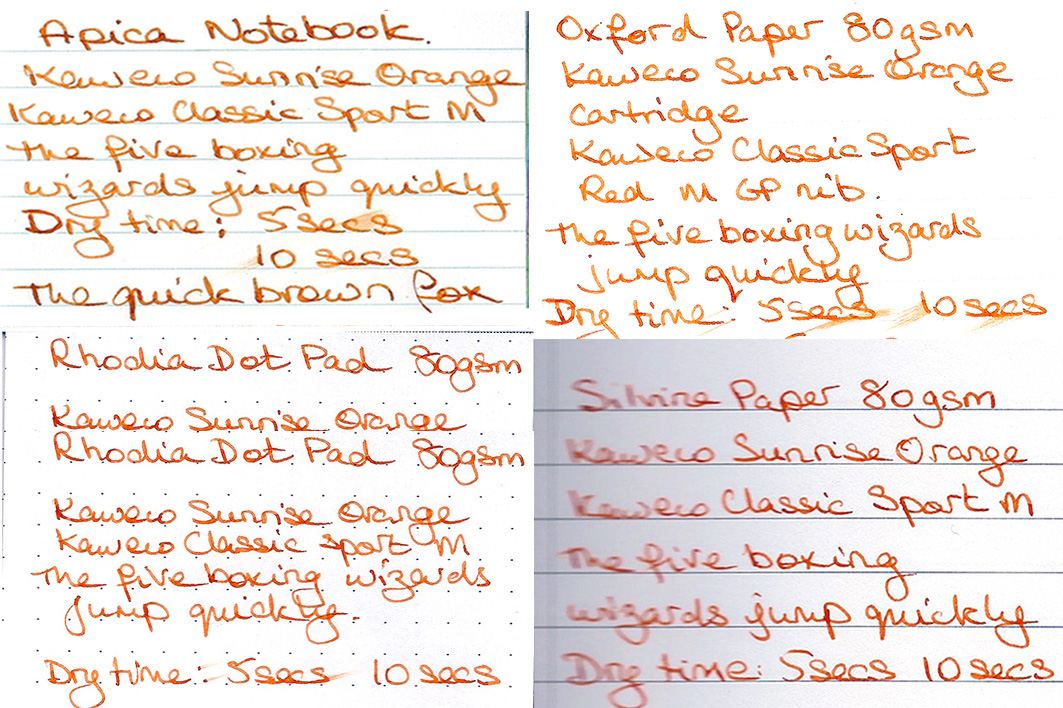 Apica Notebook.
Kaweco Sunrise Orange
Kaweco Classic Sport M
The five boxing
wizards jump quickly
Dry time: 5secs
10 secs
The quick brown fox
Oxford Paper 80gsm
Kaweco Sunrise Orange
Cartridge
Kaweco Classic Sport
Red M GP nib.
The five boxing wizards
jump quickly
Dry time: 5secs 10 secs
Rhodia Dot Pad 80gsm
Kaweco Sunrise Orange
Rhodia Dot Pad 80gsm
Kaweco Sunrise Orange
Kaweco Classic Sport M
The five boxing wizards
jump quickly.
Dry time: 5secs 10 secs
Silvine Paper 80gsm
Kaweco Sunrise Orange
Kaweco Classic Sport M
The five boxing
wizards jump quickly
Dry time: 5secs 10 secs